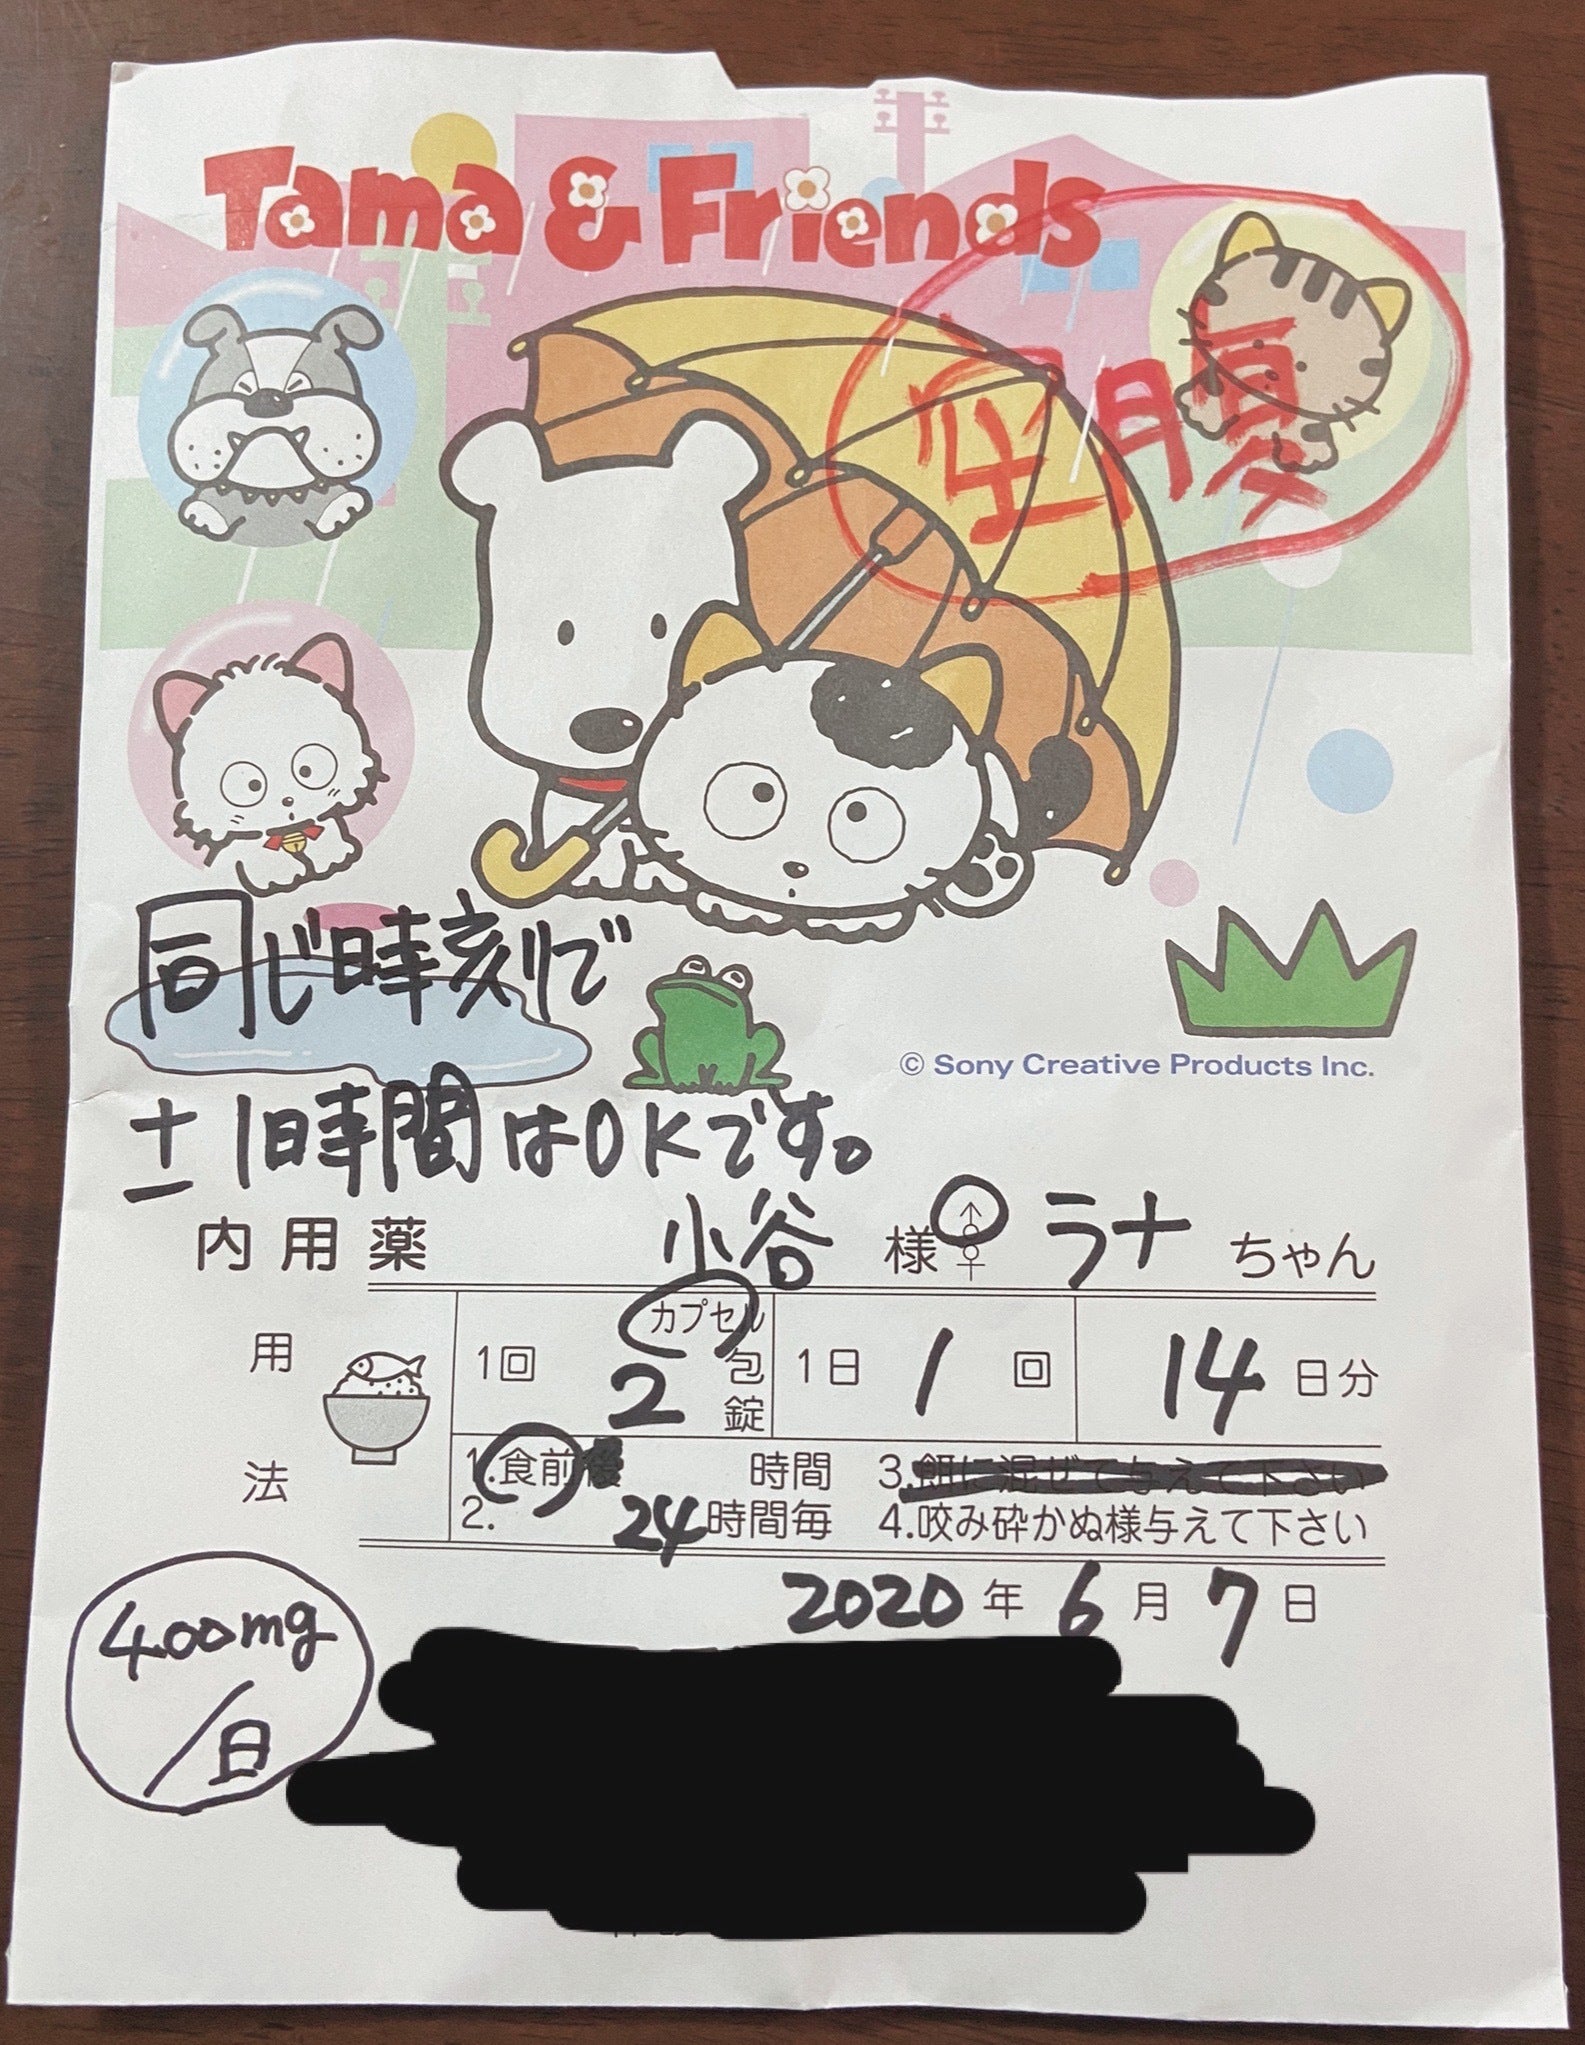 Tama & Friends
空腹
同じ時刻で
© Sony Creative Products Inc.
±1時間はOKです。
内用薬 小谷 様 ♂♀ ラナ ちゃん
用法
カプセル
1回 2 包 1日 1 回 14 日分
錠
1.食前後 時間 3.餌に混ぜて与えて下さい
2. 24時間毎 4.咬み砕かぬ様与えて下さい
2020年 6月 7日
400mg
/日